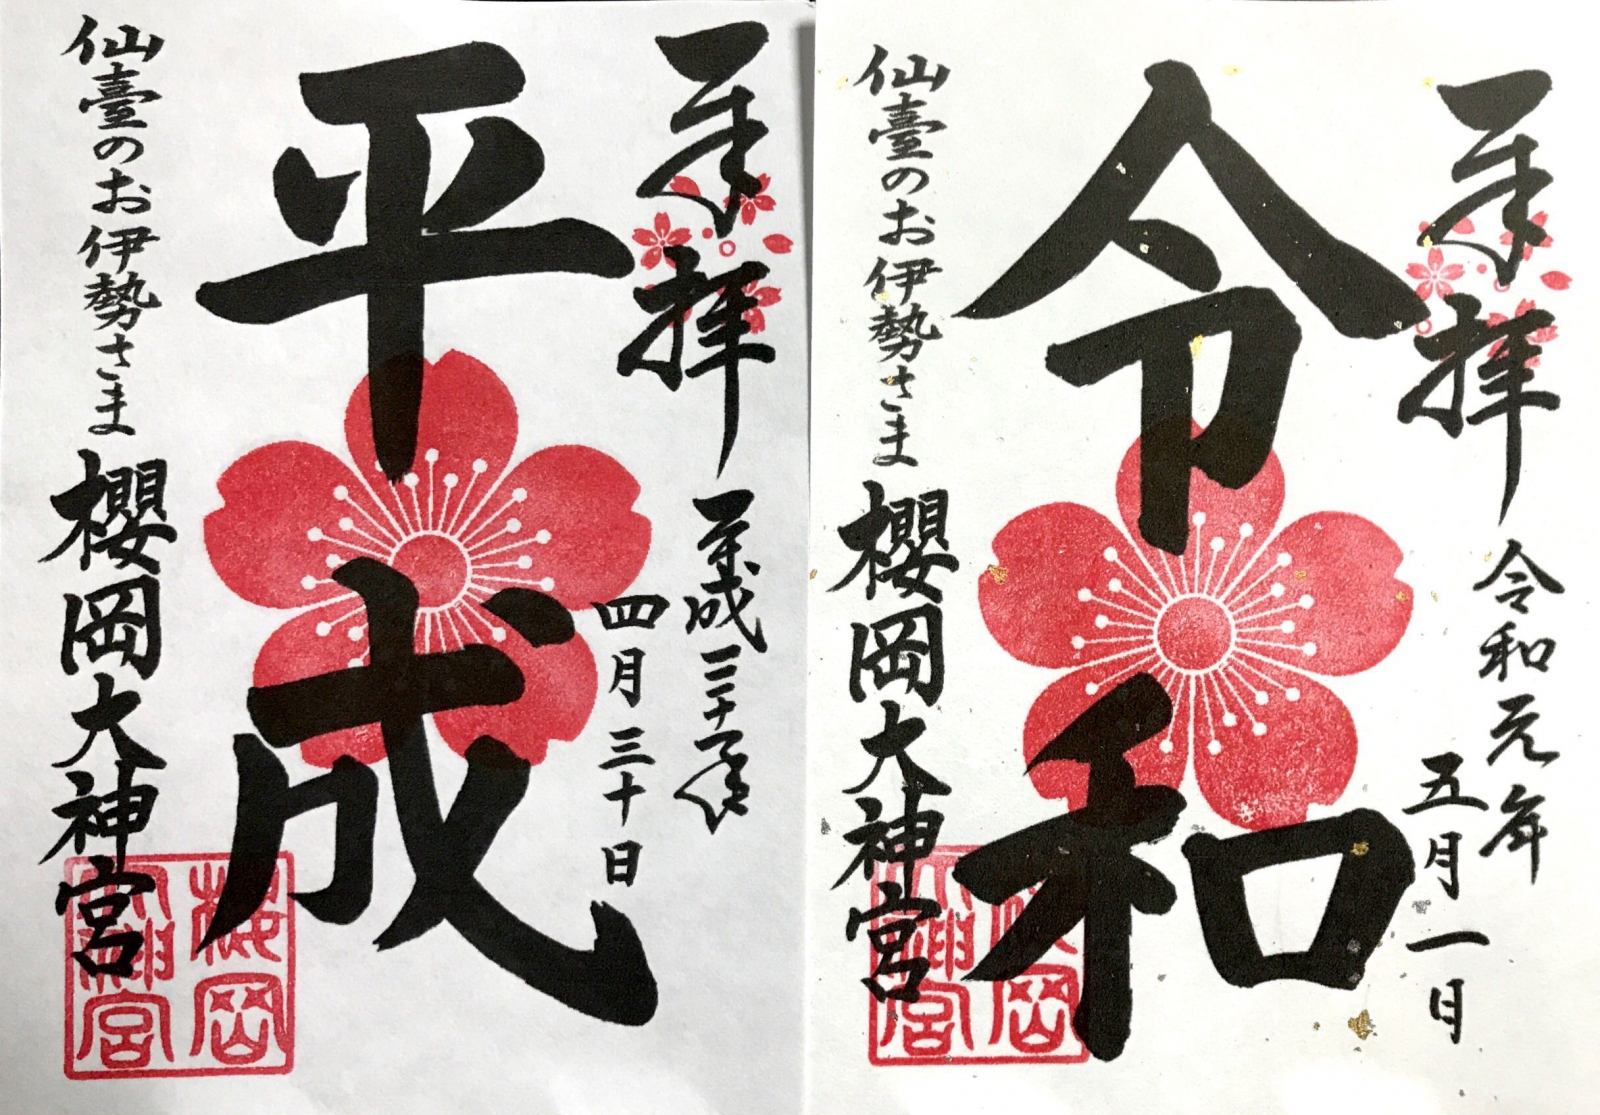 奉拝
平成三十一年
四月三十日
平成
仙臺のお伊勢さま 櫻岡大神宮
櫻岡
大神宮
奉拝
令和元年
五月一日
令和
仙臺のお伊勢さま 櫻岡大神宮
櫻岡
大神宮